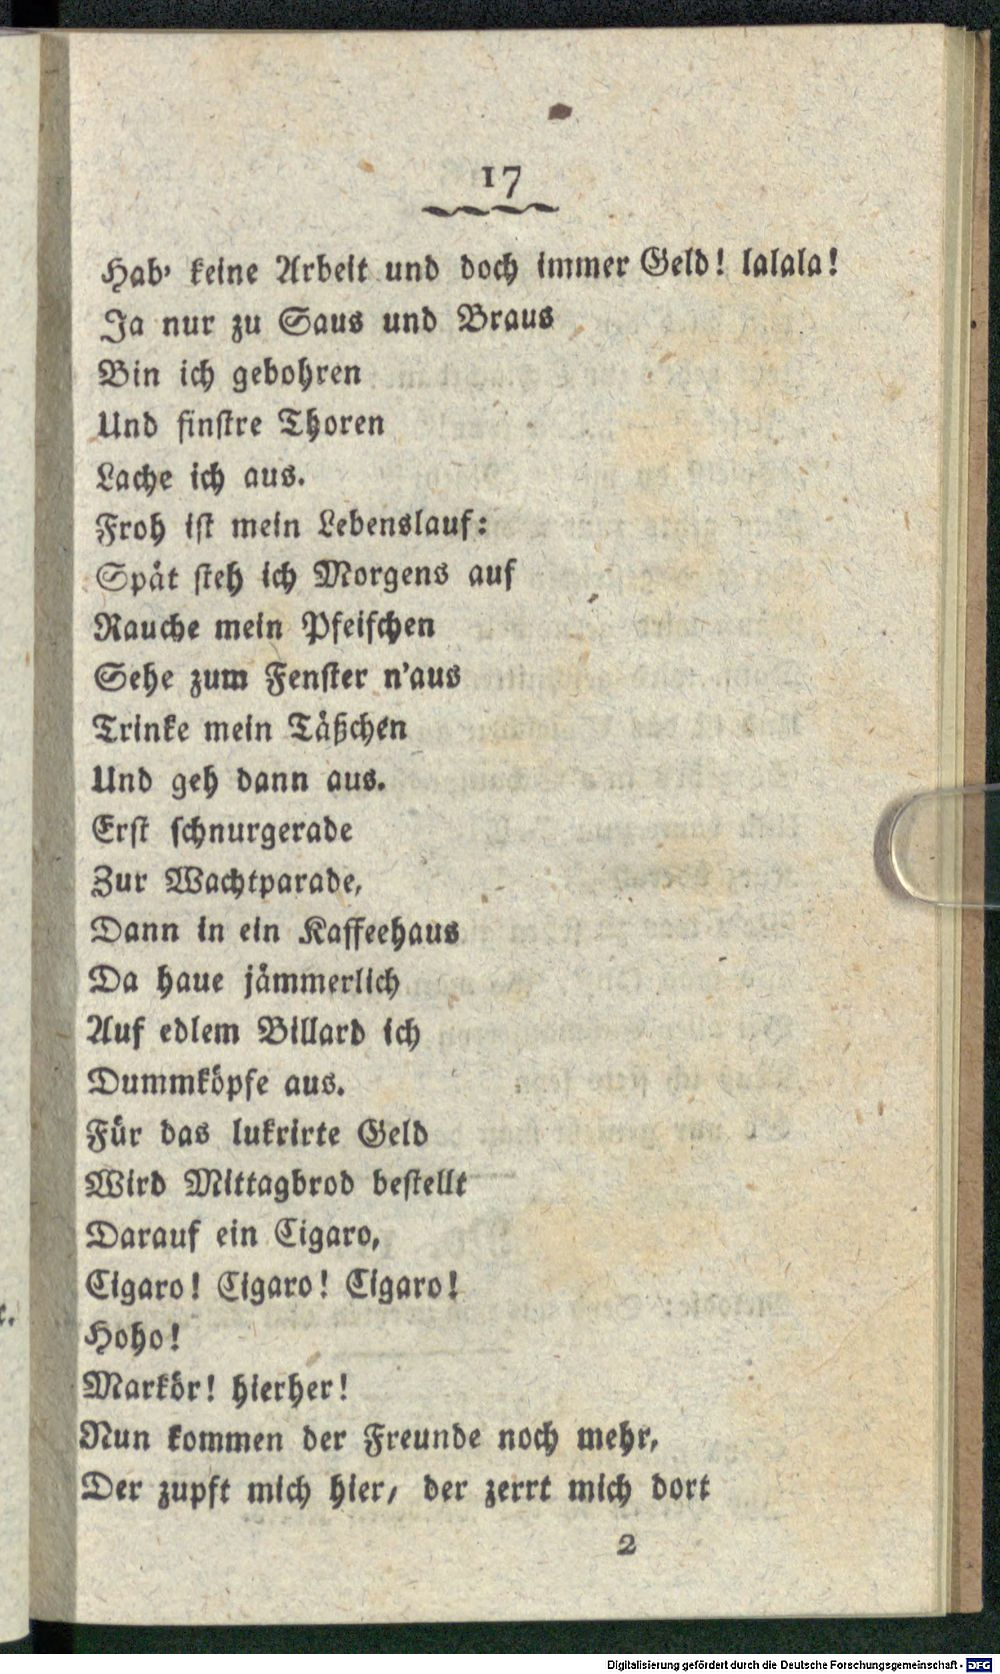 17
Hab' keine Arbeit und doch immer Geld! lalala!
Ja nur zu Saus und Braus
Bin ich gebohren
Und finstre Thoren
Lache ich aus.
Froh ist mein Lebenslauf:
Spät steh ich Morgens auf
Rauche mein Pfeifchen
Sehe zum Fenster n'aus
Trinke mein Täßchen
Und geh dann aus.
Erst schnurgerade
Zur Wachtparade,
Dann in ein Kaffeehaus
Da haue jämmerlich
Auf edlem Billard ich
Dummköpfe aus.
Für das lukrirte Geld
Wird Mittagbrod bestellt
Darauf ein Cigaro,
Cigaro! Cigaro! Cigaro!
Hoho!
Markör! hierher!
Nun kommen der Freunde noch mehr,
Der zupft mich hier, der zerrt mich dort
2
Digitalisierung gefördert durch die Deutsche Forschungsgemeinschaft - DFG